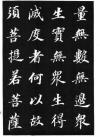 量無數無邊眾
生實無眾生得
滅度者何以故
須菩提若菩薩